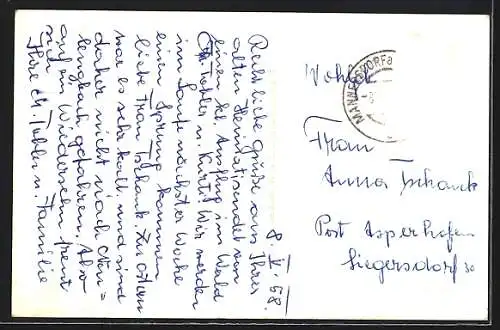 8. V. 58.
Recht liebe Grüße aus Ihrer
alten Heimat sendet von
einen kl. Ausflug im Wald
Tuhler u. Kurti. Wir werden
im Laufe nächster Woche
einen Sprung kommen
liebe Frau Tschank. Zu Ostern
war es sehr kalt und sind
daher nicht nach
lengbach gefahren. Also
auf ein Wiedersehn freut
sich
Ihre M. Tuhler u. Familie
MANNERSDORF
Frau
Anna Tschank
Post Asperhofen
Siegersdorf 30